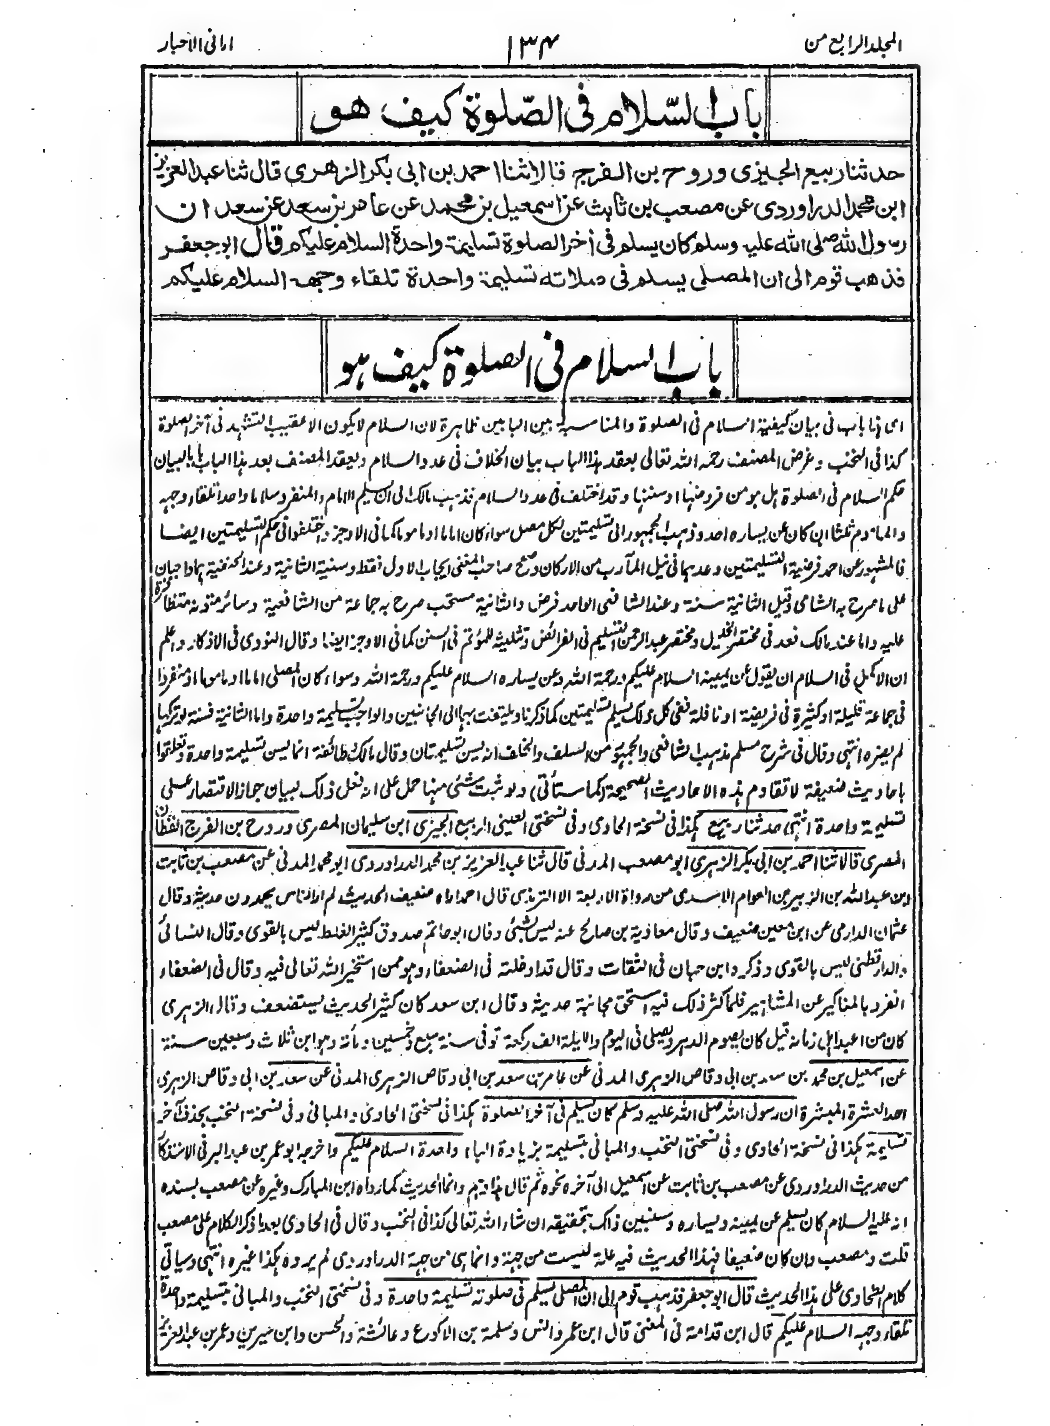 المجلد الرابع من
١٣٤
امانی الاحبار
باب السّلام فی الصّلوة کیف هو
حدثنا ربیع الجیزی وروح بن الفرج قالا ثنا احمد بن ابی بکر الزهری قال ثنا عبد العزیز
ابن محمد الدراوردی عن مصعب بن ثابت عن اسمعیل بن محمد عن عامر بن سعد عن سعد ان
رسول الله صلی الله علیه وسلم کان یسلم فی اخر الصلوة تسلیمة واحدة السلام علیکم قال ابو جعفر
فذهب قوم الی ان المصلی یسلم فی صلاته تسلیمة واحدة تلقاء وجهه السلام علیکم
باب السلام فی الصلوة کیف ہو
ای ہذا باب فی بیان کیفیة السلام فی الصلوة والمناسبة بین البابین ظاہرة لان السلام لا یکون الا عقیب التشہد فی آخر الصلوة
کذا فی النخب وغرض المصنف رحمہ اللہ تعالی بعقد ہذا الباب بیان الخلاف فی عدد السلام ویعقد المصنف بعد ہذا الباب بابا لبیان
حکم السلام فی الصلوة ہل ہو من فروضہا او سننہا وقد اختلف فی عدد السلام فذہب مالک الی ان تسلیم الامام والمنفرد سلاما واحدا تلقاء وجہہ
والماموم ثلثا ان کان عن یسارہ احد وذہب الجمہور الی تسلیمتین لکل مصل سواء کان اماما او ماموما کما فی الاوجز واختلفوا فی حکم التسلیمتین ایضا
فالمشہور عن احمد فرضیة التسلیمتین وعدہما فی نیل المآرب من الارکان ورجح صاحب المغنی ایجاب الاول فقط وسنیة الثانیة وعند الحنفیة ہما واجبان
علی ما صرح بہ الشامی وقیل الثانیة سنة وعند الشافعی الواحد فرض والثانیة مستحب صرح بہ جماعة من الشافعیة وسائر متونہ متظافرة
علیہ واما عند مالک فعد فی مختصر الخلیل ومختصر عبد الرحمن التسلیم فی الفرائض وتثلیثہ للمؤتم فی السنن کما فی الاوجز ایضا وقال النووی فی الاذکار واعلم
ان الاکمل فی السلام ان یقول عن یمینہ السلام علیکم ورحمة اللہ وعن یسارہ السلام علیکم ورحمة اللہ وسواء کان المصلی اماما او ماموما او منفردا
فی جماعة قلیلة او کثیرة فی فریضة او نافلة ففی کل ذلک یسلم تسلیمتین کما ذکرنا ویلتفت بہما الی الجانبین والواجب تسلیمة واحدة واما الثانیة فسنة لو ترکہا
لم یضرہ انتہی وقال فی شرح مسلم مذہب الشافعی والجمہور من السلف والخلف انہ یسن تسلیمتان وقال مالک وطائفة انما یسن تسلیمة واحدة وتعلقوا
باحادیث ضعیفة لا تقاوم ہذہ الاحادیث الصحیحة (کما ستأتی) ولو ثبت شئ منہا حمل علی انہ فعل ذلک لبیان جواز الاقتصار علی
تسلیمة واحدة انتہی حدثنا ربیع ہکذا فی نسخة الحاوی وفی نسختی العینی الربیع الجیزی ابن سلیمان المصری وروح بن الفرج القطان
المصری قالا ثنا احمد بن ابی بکر الزہری ابو مصعب المدنی قال ثنا عبد العزیز بن محمد الدراوردی ابو محمد المدنی عن مصعب بن ثابت
ابن عبد اللہ بن الزبیر بن العوام الاسدی من رواة الاربعة الا الترمذی قال احمد اراہ ضعیف الحدیث لم ار الناس یحمدون حدیثہ وقال
عثمان الدارمی عن ابن معین ضعیف وقال معاویة بن صالح عنہ لیس بشئ وقال ابو حاتم صدوق کثیر الغلط لیس بالقوی وقال النسائی
والدارقطنی لیس بالقوی وذکرہ ابن حبان فی الثقات وقال قد ادخلتہ فی الضعفاء وہو ممن استخیر اللہ تعالی فیہ وقال فی الضعفاء
انفرد بالمناکیر عن المشاہیر فلما کثر ذلک فیہ استحق مجانبة حدیثہ وقال ابن سعد کان کثیر الحدیث یستضعف وقال الزہری
کان من اعبد اہل زمانہ قیل کان یصوم الدہر ویصلی فی الیوم واللیلة الف رکعة توفی سنة سبع وخمسین ومائة وہو ابن ثلاث وسبعین سنة
عن اسمعیل بن محمد بن سعد بن ابی وقاص الزہری المدنی عن عامر بن سعد بن ابی وقاص الزہری المدنی عن سعد بن ابی وقاص الزہری
احد العشرة المبشرة ان رسول اللہ صلی اللہ علیہ وسلم کان یسلم فی آخر الصلوة ہکذا فی نسختی الحاوی والمبانی وفی نسخة النخب بحذف آخر
تسلیمة ہکذا فی نسخة الحاوی وفی نسختی النخب والمبانی بتسلیمة بزیادة الباء واحدة السلام علیکم واخرجہ ابو عمر بن عبد البر فی الاستذکار
من حدیث الدراوردی عن مصعب بن ثابت عن اسمعیل الی آخرہ نحوہ ثم قال ہذا وہم وانما الحدیث کما رواہ ابن المبارک وغیرہ عن مصعب بسندہ
انہ علیہ السلام کان یسلم عن یمینہ ویسارہ وسنبین ذلک بتحقیقہ ان شاء اللہ تعالی کذا فی النخب وقال فی الحاوی بعد ما ذکر الکلام علی مصعب
قلت ومصعب وان کان ضعیفا فہذا الحدیث فیہ علة لیست من جہتہ وانما ہی من جہة الدراوردی لم یروہ ہکذا غیرہ انتہی وسیاتی
کلام الطحاوی علی ہذا الحدیث قال ابو جعفر فذہب قوم الی ان المصلی یسلم فی صلوتہ تسلیمة واحدة وفی نسختی النخب والمبانی بتسلیمة واحدة
تلقاء وجہہ السلام علیکم قال ابن قدامة فی المغنی قال ابن عمر وانس وسلمة بن الاکوع وعائشة والحسن وابن سیرین وعمر بن عبد العزیز